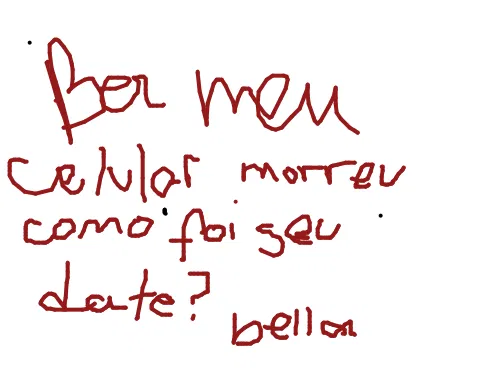 Ber meu
celular morreu
como foi seu
date?
bellar